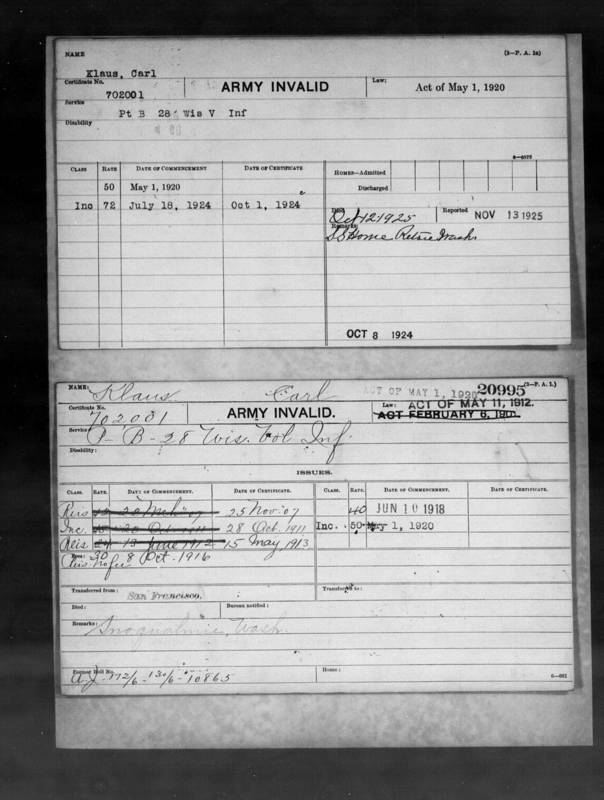 NAME (3—P. A. 1a)
Klaus, Carl
Certificate No. 702001 ARMY INVALID Law: Act of May 1, 1920
Service Pt B 28 Wis V Inf
Disability
6—6572
CLASS RATE DATE OF COMMENCEMENT DATE OF CERTIFICATE HOMES—Admitted
Discharged
50 May 1, 1920
Inc 72 July 18, 1924 Oct 1, 1924 Died Oct 12 1925 Reported NOV 13 1925
Remarks: S S Home Retsil Wash
OCT 8 1924
NAME: Klaus Carl ACT OF MAY 1, 1920 20995 (3—P. A. 1.)
Certificate No. 702001 ARMY INVALID. Law: ACT OF MAY 11, 1912.
ACT FEBRUARY 6, 1907.
Service: P- B- 28 Wis. Vol. Inf.
Disability:
ISSUES.
CLASS. RATE. DATE OF COMMENCEMENT. DATE OF CERTIFICATE. CLASS. RATE. DATE OF COMMENCEMENT. DATE OF CERTIFICATE.
Reis 12 20 Mch '07 25 Nov. '07 40 JUN 10 1918
Inc. 15 20 Oct 28 Oct. 1911 Inc. 50 May 1, 1920
Reis 24 13 June 1912 15 May 1913
30 8 Oct. 1916
Transferred from: San Francisco. Transferred to:
Died: Bureau notified:
Remarks: Snoqualmie, Wash.
Former Roll No. 172/6-130/6-10865 Home:
6—661